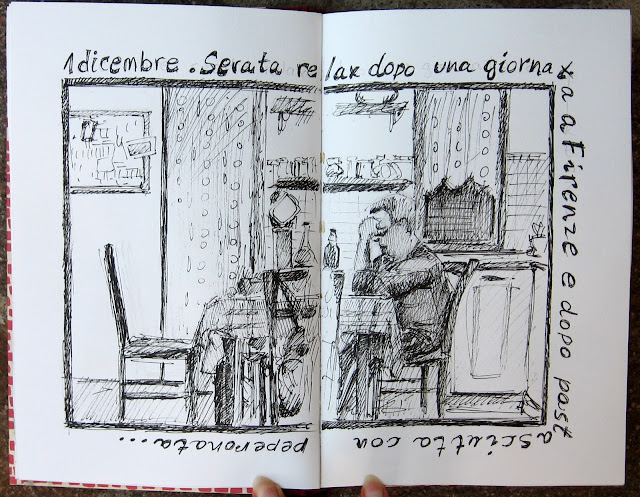 1 dicembre. Serata relax dopo una giorna
ta a Firenze e dopo past
asciutta con
peperonata...